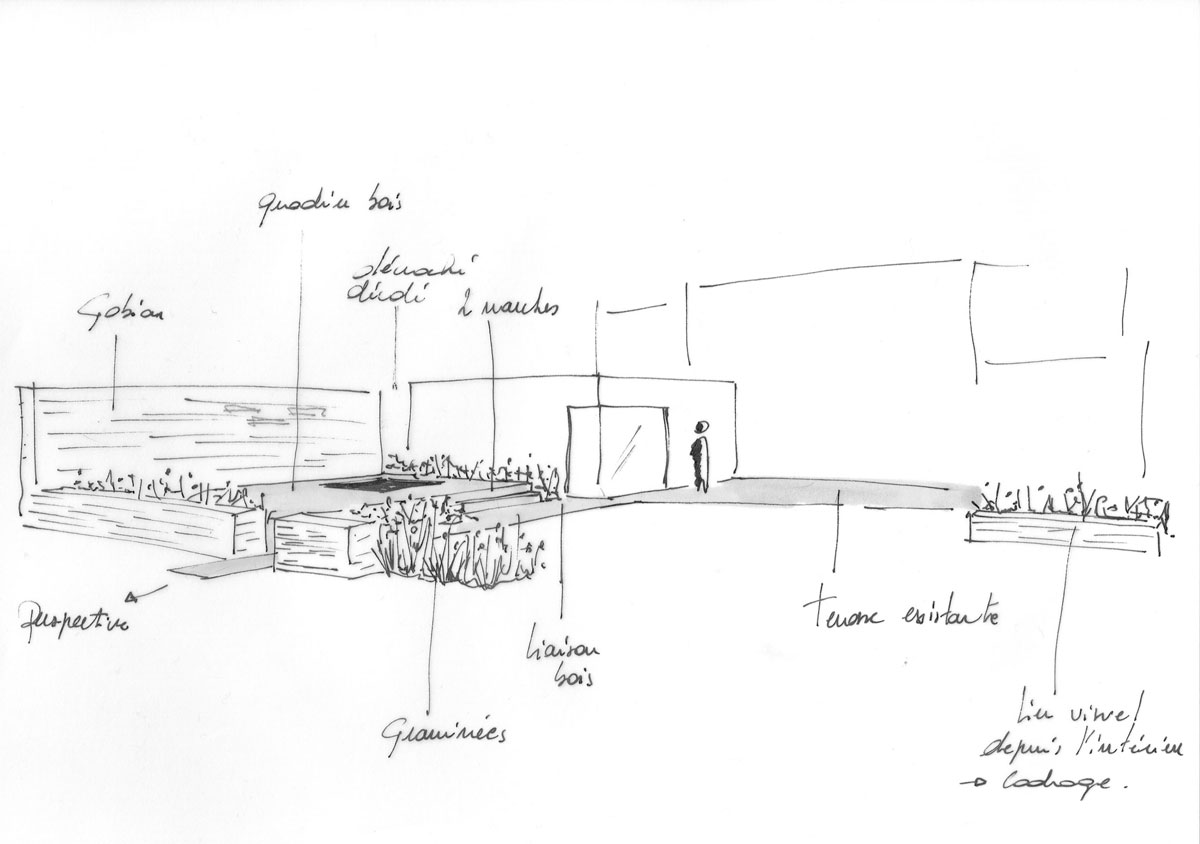 bois
Gabion
2 marches
Perspective
Liaison
bois
Graminées
Terrasse existante
Lien visuel
depuis l'intérieur
→ Cadrage.